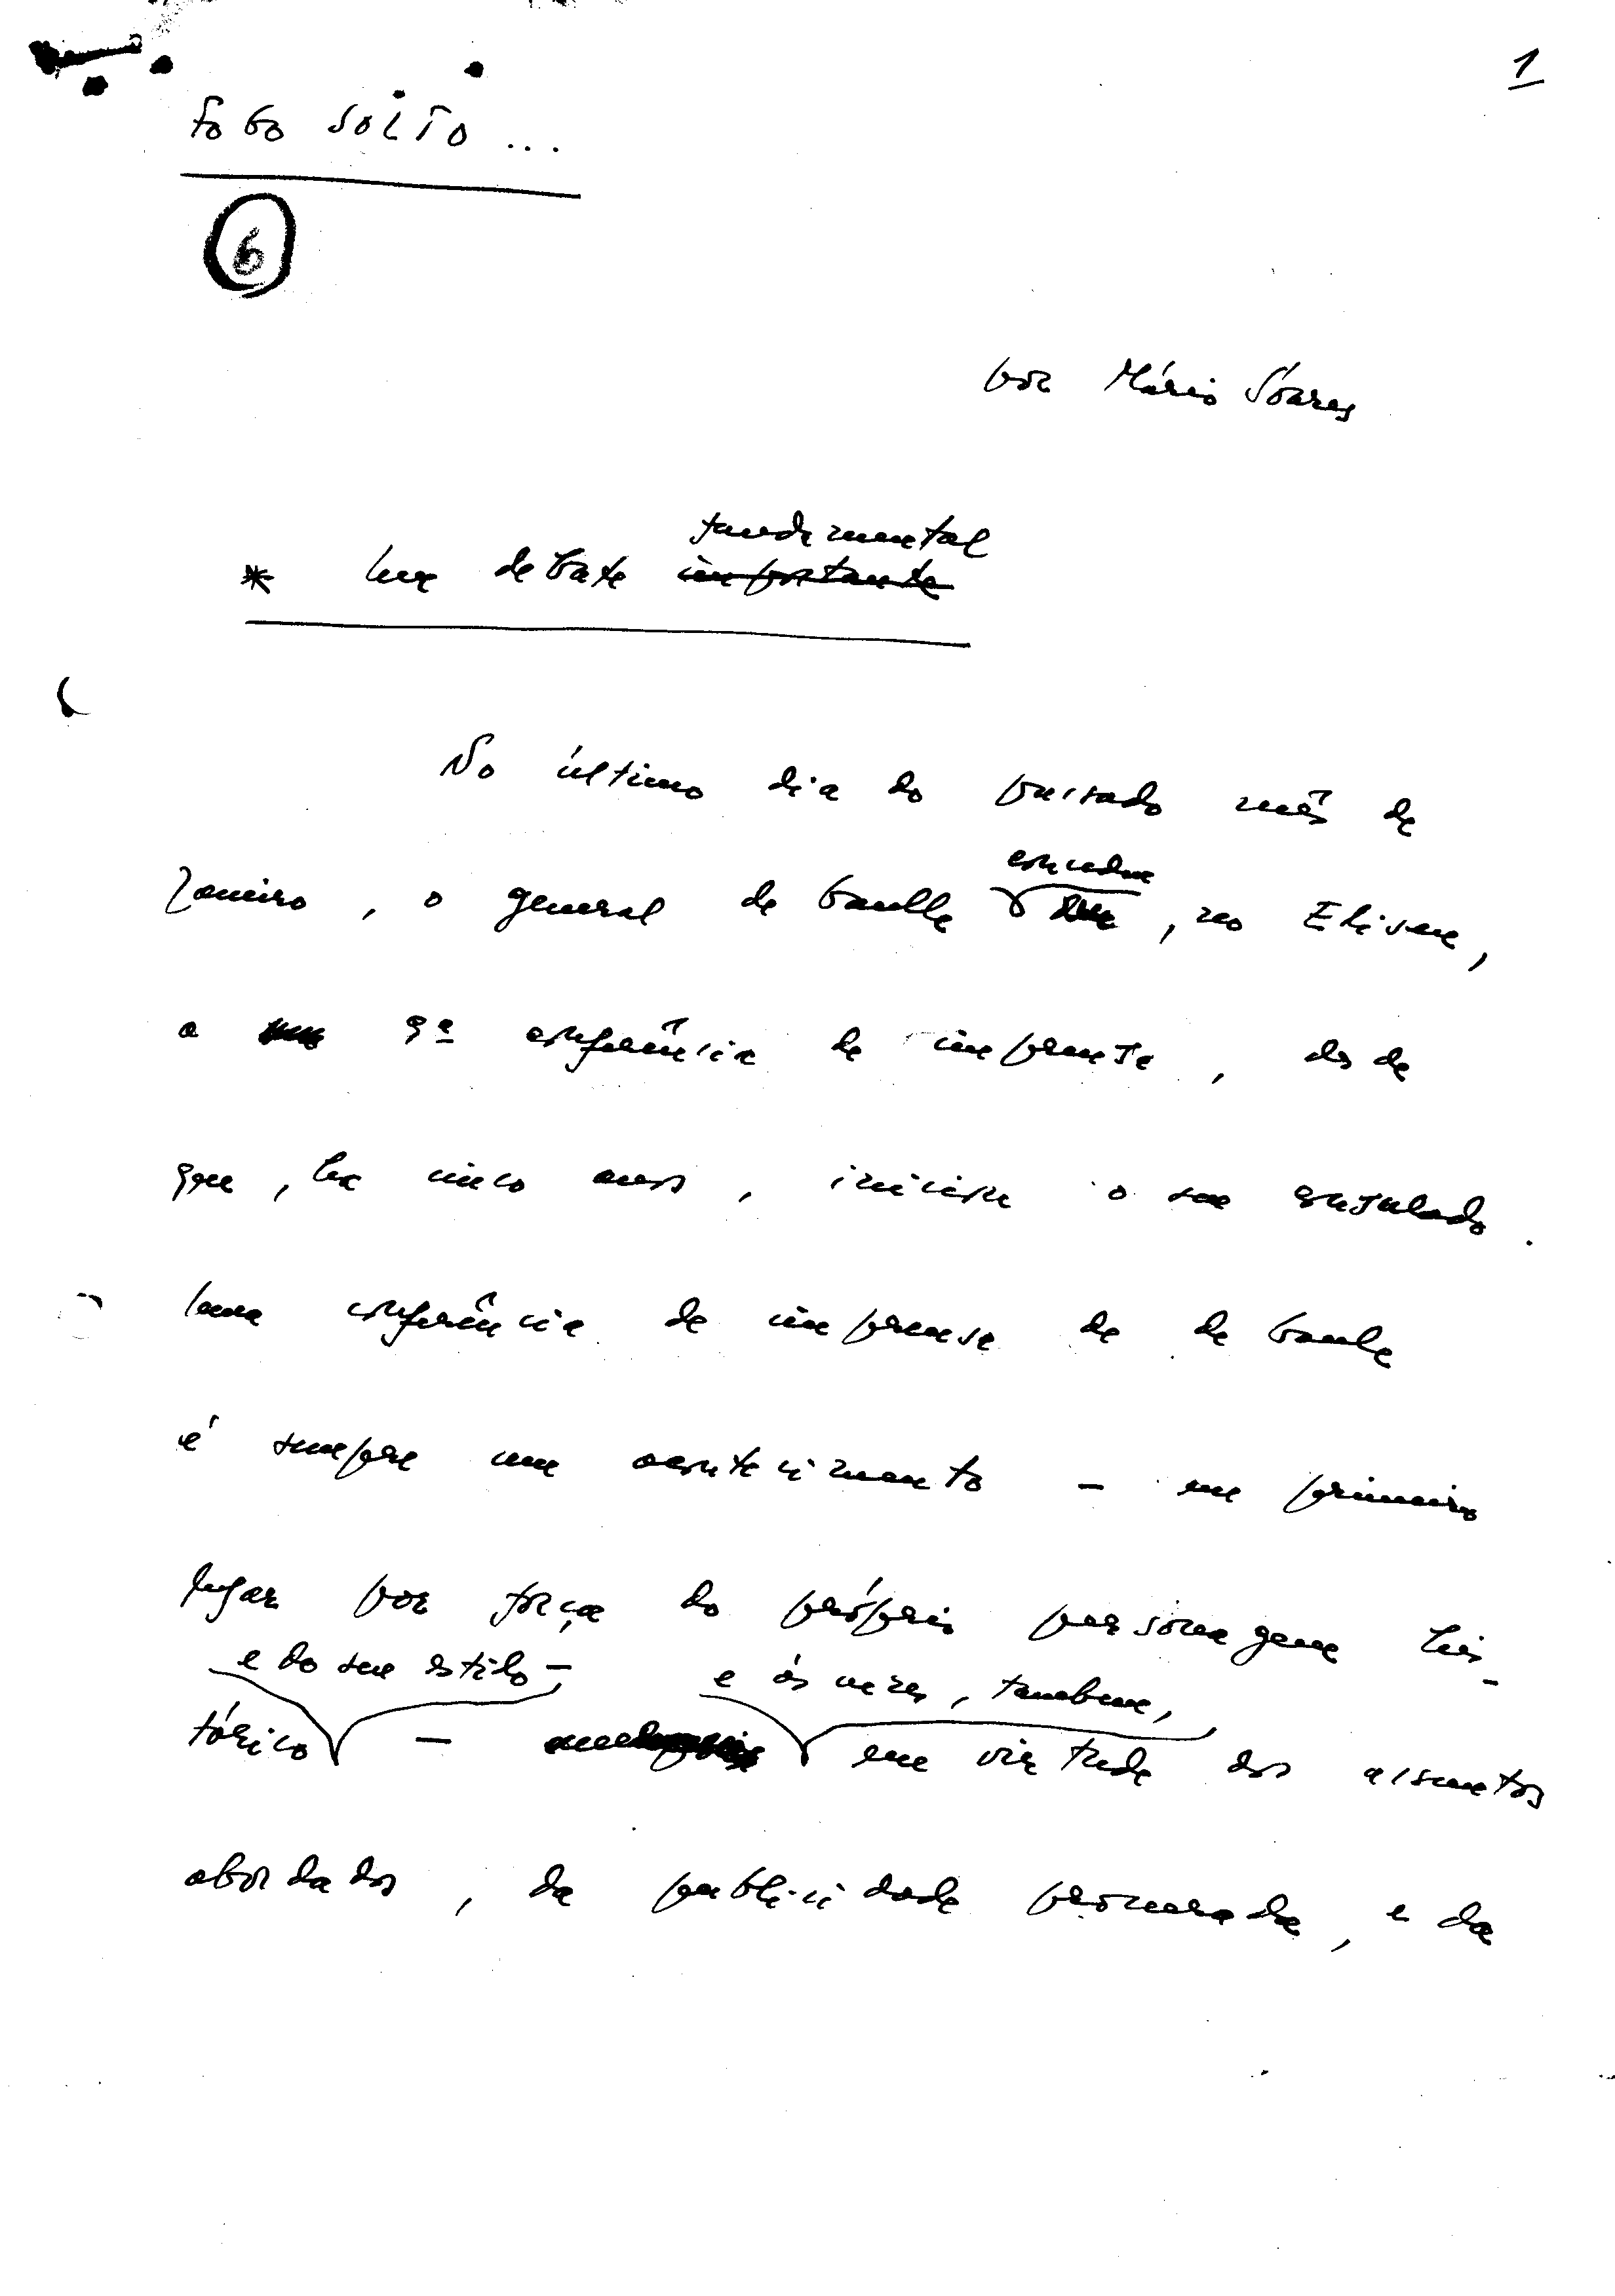 1
FOGO SOLTO ...
6
por Mário Soares
fundamental
* Um debate importante
No último dia do passado mês de
Janeiro, o general de Gaulle
concedeu
deu, no Eliseu,
a 9ª conferência de imprensa, desde
que, há cinco anos, iniciou o seu consulado.
Uma conferência de imprensa de de Gaulle
é sempre um acontecimento - em primeiro
lugar por força do próprio personagem his-
e do seu estilo -
e às vezes, também,
tórico - em virtude dos assuntos
abordados, da publicidade procurada, e da